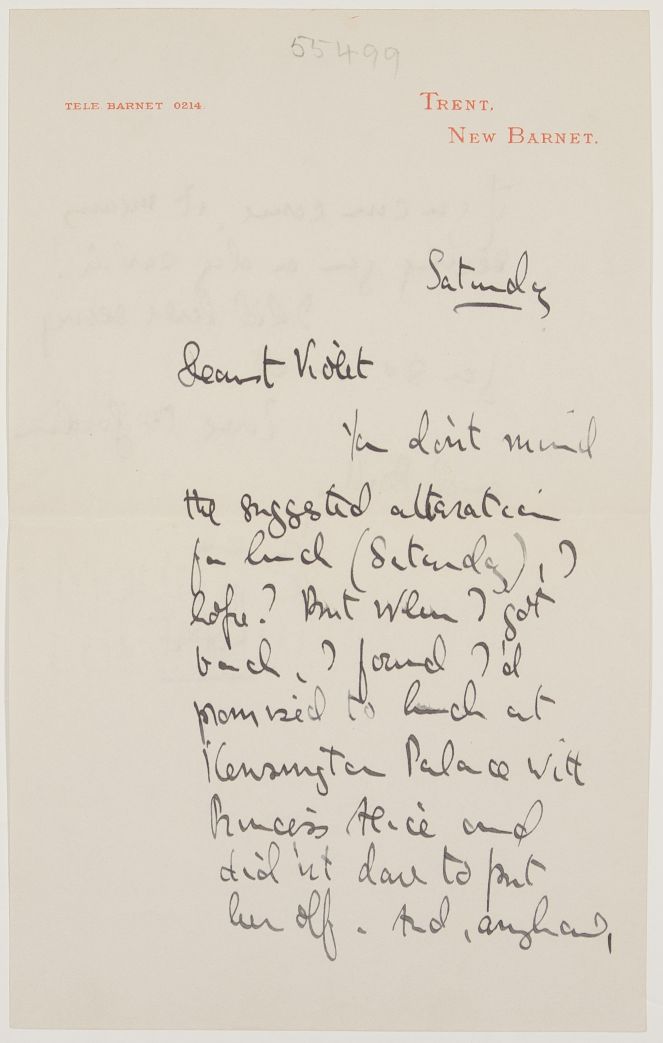 55499
TELE. BARNET 0214.
TRENT,
NEW BARNET.
Saturday
Dearest Violet
You don't mind
the suggested alteration
for lunch (Saturday), I
hope? But when I got
back, I found I'd
promised to lunch at
Kensington Palace with
Princess Alice and
did'nt dare to put
her off. And, anyhow,